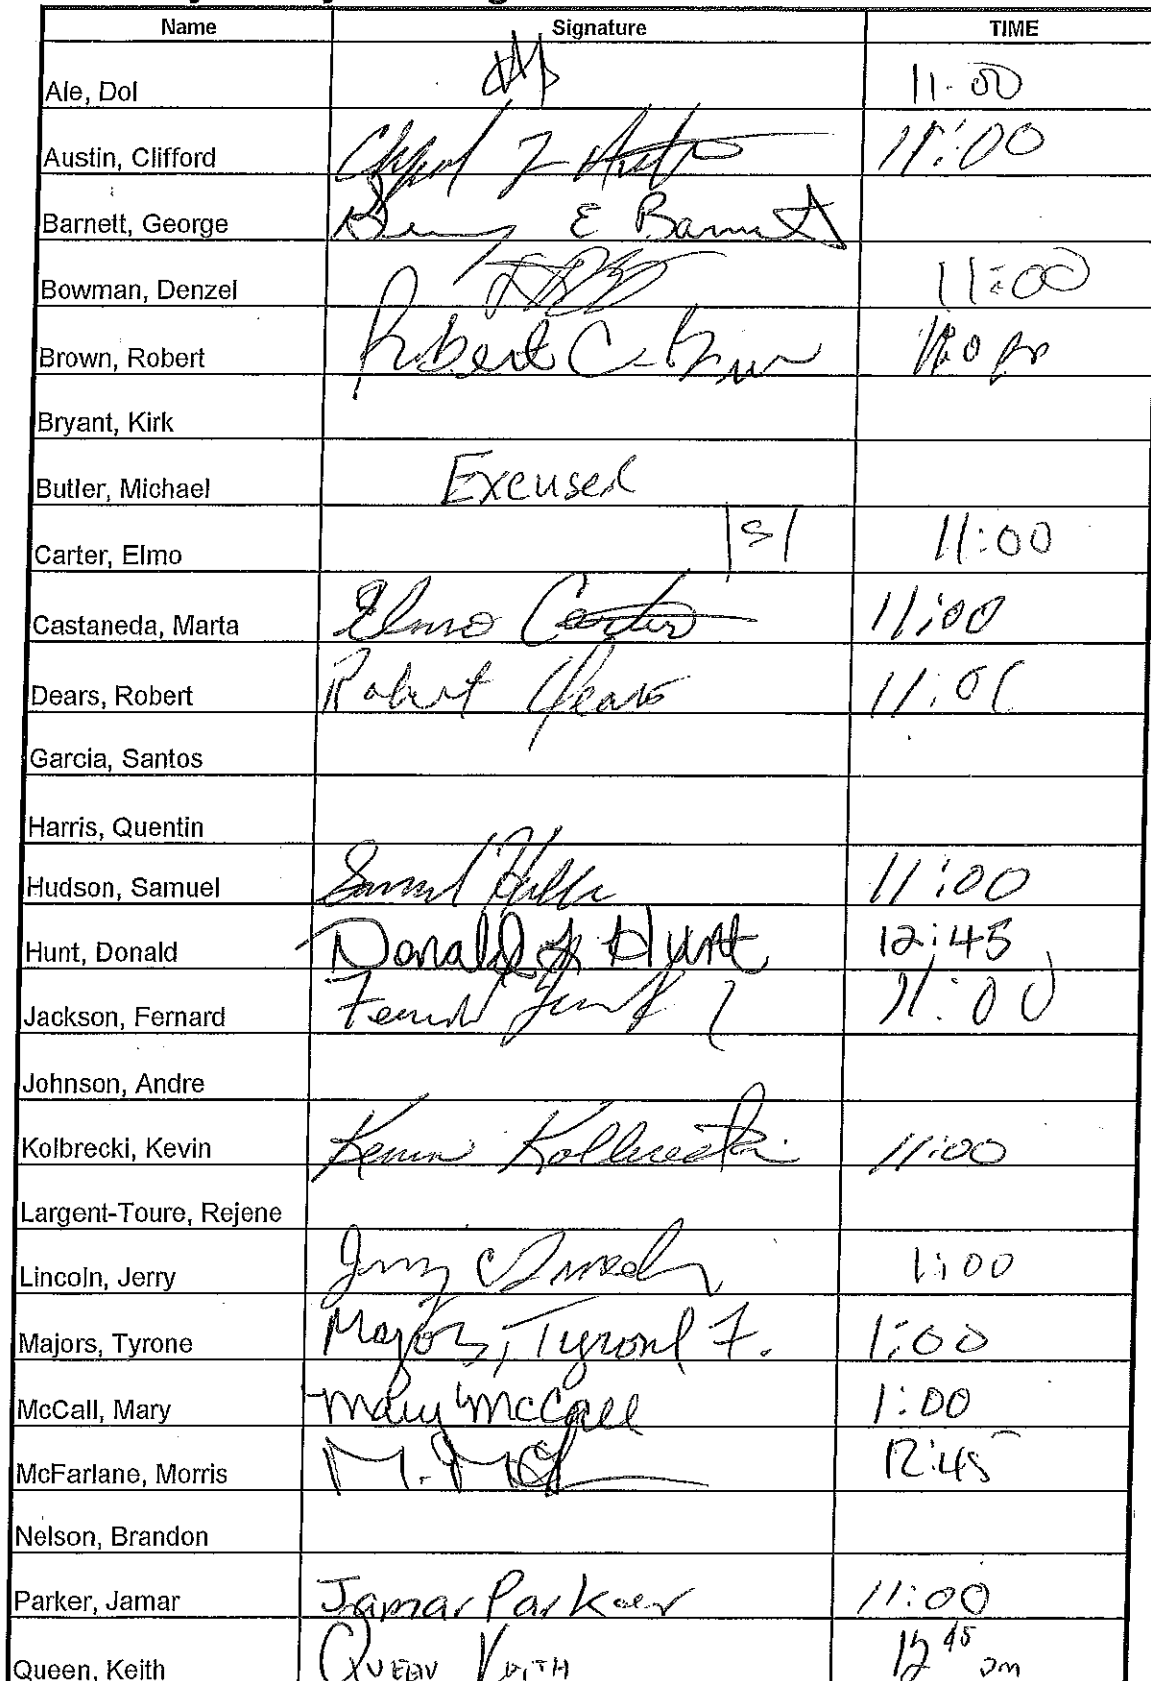 Name Signature TIME
Ale, Dol 11:00
Austin, Clifford 11:00
Barnett, George E Barnett
Bowman, Denzel 11:00
Brown, Robert Robert C. Brown
Bryant, Kirk
Butler, Michael Excused
Carter, Elmo 11:00
Castaneda, Marta Elmo Carter 11:00
Dears, Robert Robert Dears
Garcia, Santos
Harris, Quentin
Hudson, Samuel Samuel 11:00
Hunt, Donald Donald J Hunt 12:45
Jackson, Fernard 11:00
Johnson, Andre
Kolbrecki, Kevin Kevin Kolbrecki 11:00
Largent-Toure, Rejene
Lincoln, Jerry Jerry C Lincoln 1:00
Majors, Tyrone Majors, Tyrone F. 1:00
McCall, Mary Mary McCall 1:00
McFarlane, Morris 12:45
Nelson, Brandon
Parker, Jamar Jamar Parker 11:00
Queen, Keith Queen Keith 12 45 pm